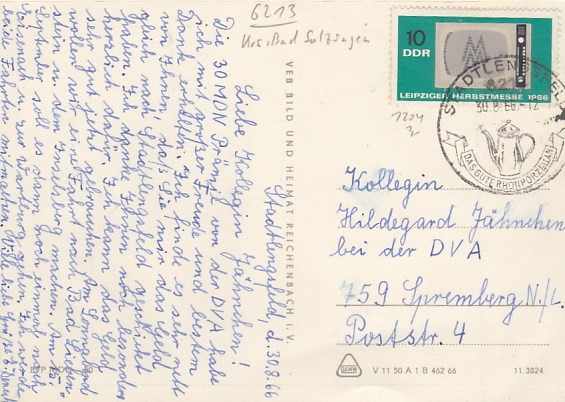 6213
Krs. Bad Salzungen
10
DDR
LEIPZIGER HERBSTMESSE 1966
STADTLENGSFELD
6213
30.8.66-12
DAS GUTE RHÖNPORZELLAN
1204
Stadtlengsfeld, d. 30.8.66
Liebe Kollegin Jähnchen!
Die 30 MDN Prämie von der DVA habe
ich mit großer Freude und bestem
Dank erhalten. Ich finde es sehr nett
von Ihnen, daß Sie mir das Geld
gleich nach Stadtlengsfeld geschickt
haben. Ich danke Ihnen noch besonders
herzlich dafür. Ich kann das Geld
sehr gut jetzt gebrauchen. Am Sonntag
wollen wir eine Fahrt nach Bad Lieben-
stein u. dem Inselsberg machen. Am
soll es dann noch einmal nach
Eisenach u. zur Wartburg gehen. Ich werde
beide Fahrten mitmachen.
VEB BILD UND HEIMAT REICHENBACH I. V.
Kollegin
Hildegard Jähnchen
bei der DVA
759 Spremberg N./L.
Poststr. 4
V 11 50 A 1 B 462 66
11.3824